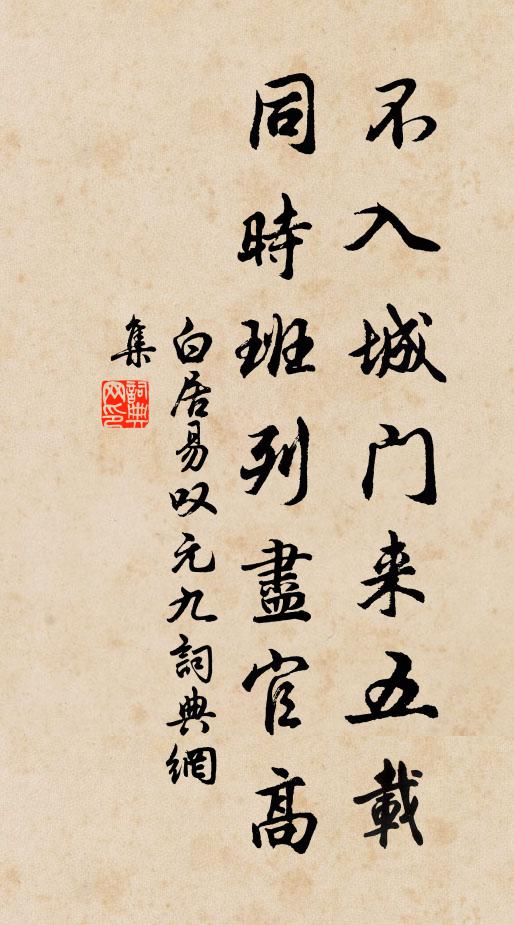 不入城门来五載
同時班列盡官高
白居易叹元九詞典網
集
詞典网印